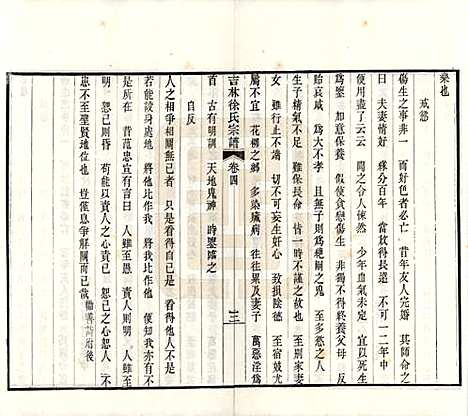 樂也
戒慾
傷生之事非一 而好色者必亡 昔年友人完婚 其師命之
曰 夫妻情好 緣分百年 當放得長遠 不可一二年中
使用盡了云云 聞之令人悚然 少年血氣未定 宜以死生
為鑒 如意保養 假使貪戀傷生 非獨不得終養父母 反
貽哀戚 豈非大不孝 且無子則為絕嗣之鬼 至於體弱多病
生子精氣不足 難保長命 惜一時不謹之故也 至別家妻
女 雖行止不端 切不可妄生奸心 致損陰德 至宿娼尤
屬不宜 花柳之鄉 多染瘋病 往往累及妻子 萬惡淫為
首 古有明訓 天地鬼神 時鑒臨之
吉林徐氏宗譜 卷四 三
自反
人之爭相鬭無已者 只是看得自己是 看得他人不是
若能設身處地 將他作我 將我作他 便自無爭
范忠宣有言曰 人雖至愚 責人則明 人雖至明 恕己則昏
苟能以責人之心責己 恕己之心恕人 不
患不至聖賢地位也 豈僅息爭解鬭而已哉